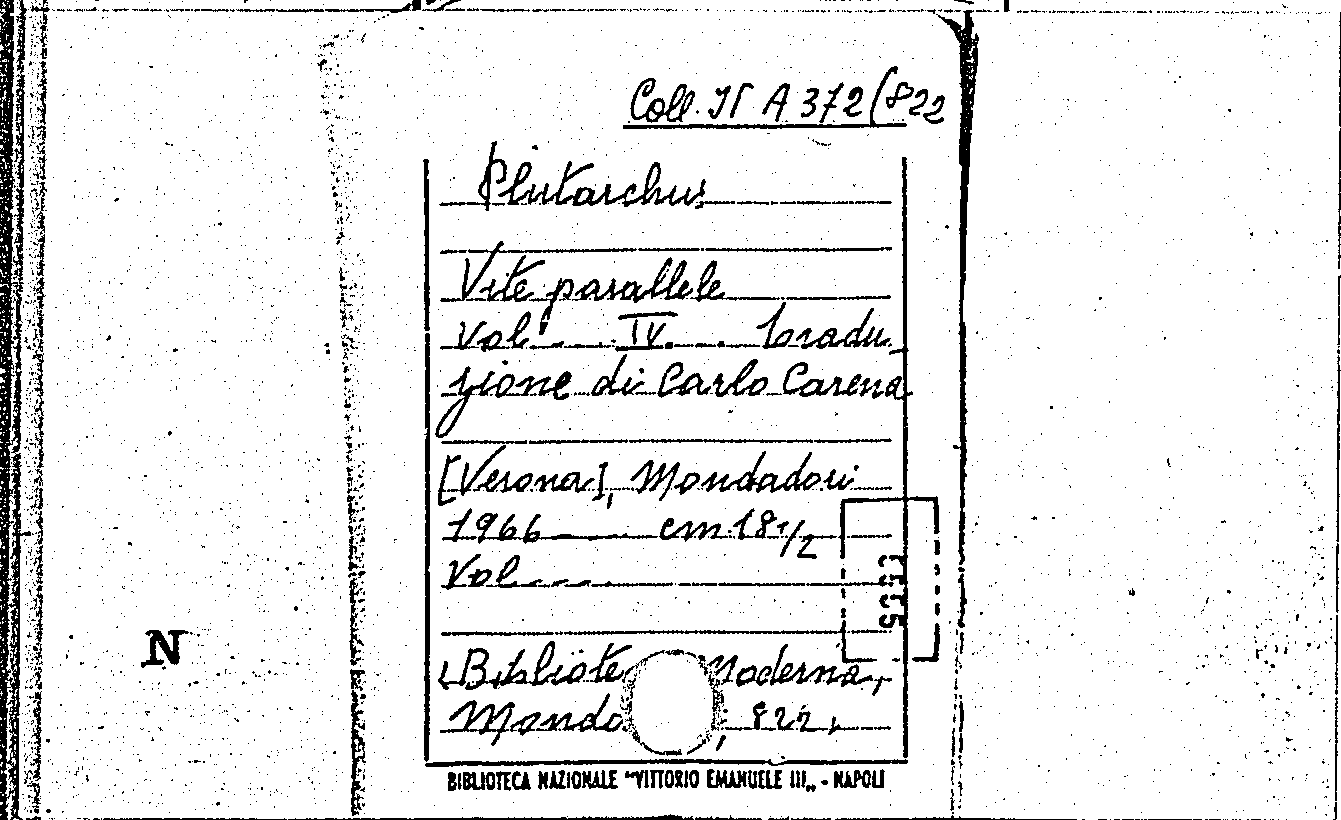 Coll. It A 372(822
Plutarchus
Vite parallele
Vol. IV. Tradu-
zione di Carlo Carena
[Verona], Mondadori
1966 cm 18 1/2
Vol.
N
(Bibliote Moderna,
Mondo , 822,
BIBLIOTECA NAZIONALE "VITTORIO EMANUELE III„ - NAPOLI